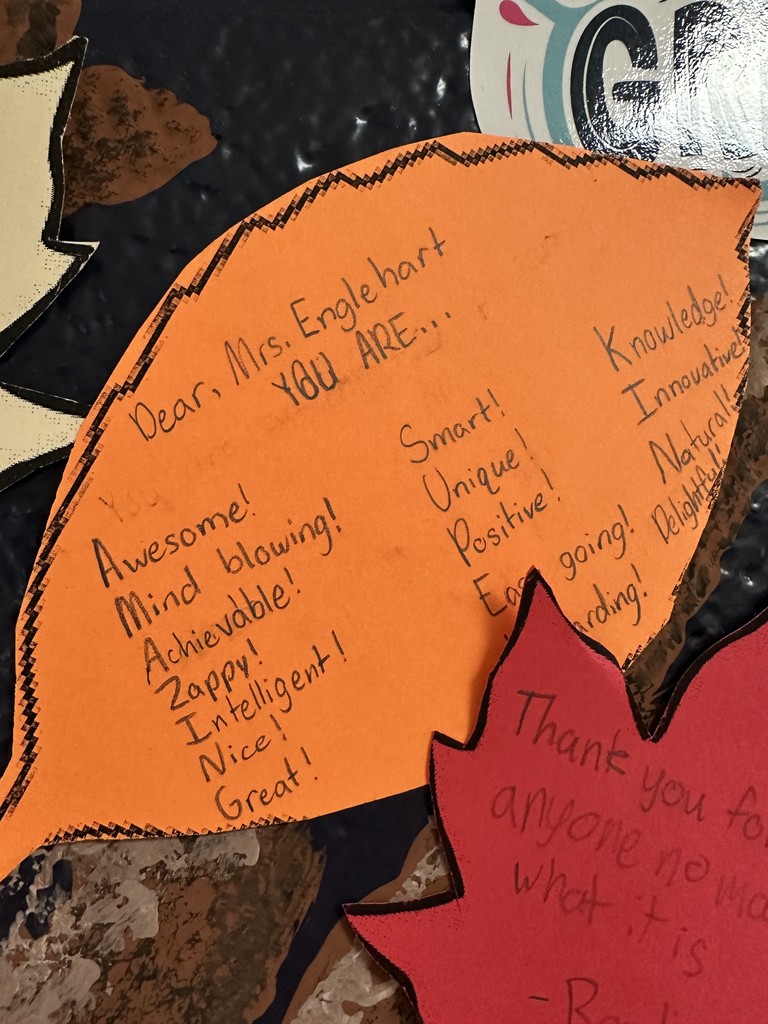 Dear, Mrs. Englehart
YOU ARE...
Awesome!
Mind blowing!
Achievable!
Zappy!
Intelligent!
Nice!
Great!
Smart!
Unique!
Positive!
going!
Knowledge!
Innovative!
Natural!
Delightful!
Thank you
anyone no
what it is